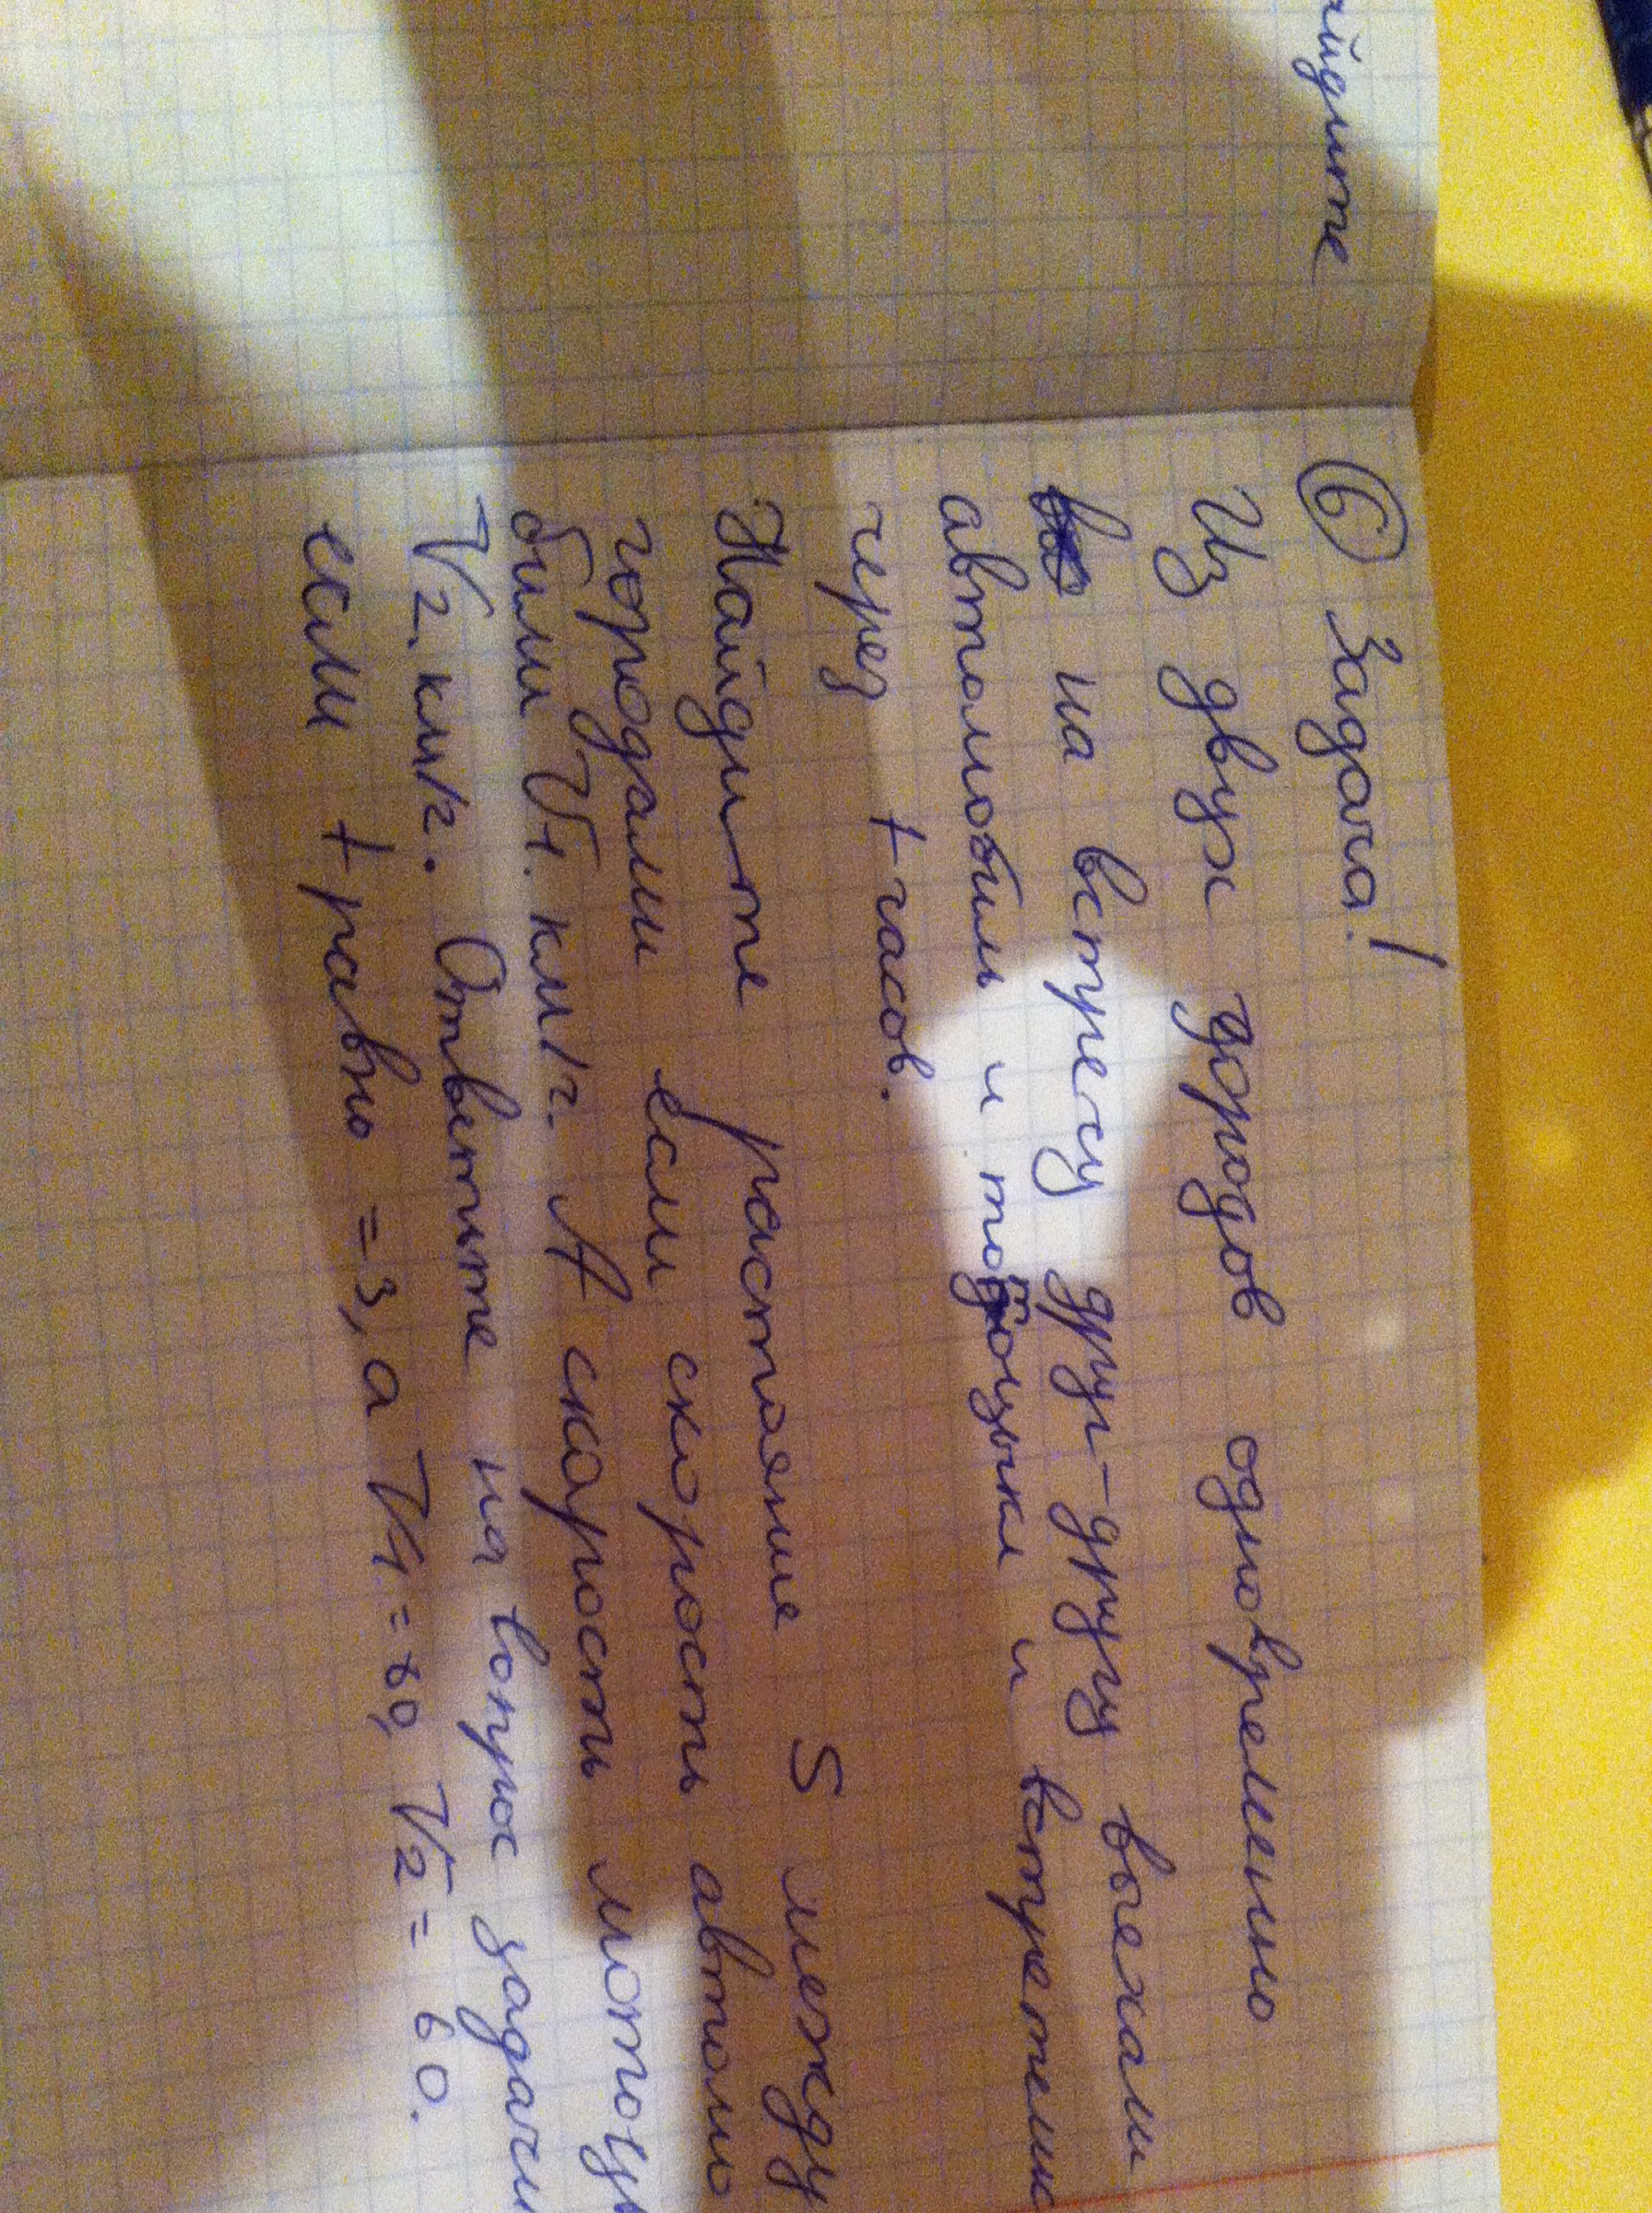 йдите
6 Задача!
Из двух городов одновременно
на встречу друг-другу выехали
автомобиль и мотоцикл и встретились
через t часов.
Найдите растояние S между
городами если скорость автомо
били V1. км/г. А скорость мотоци
V2. км/г. Ответьте на вопрос задачи
если t равно =3, а V1=80, V2= 60.